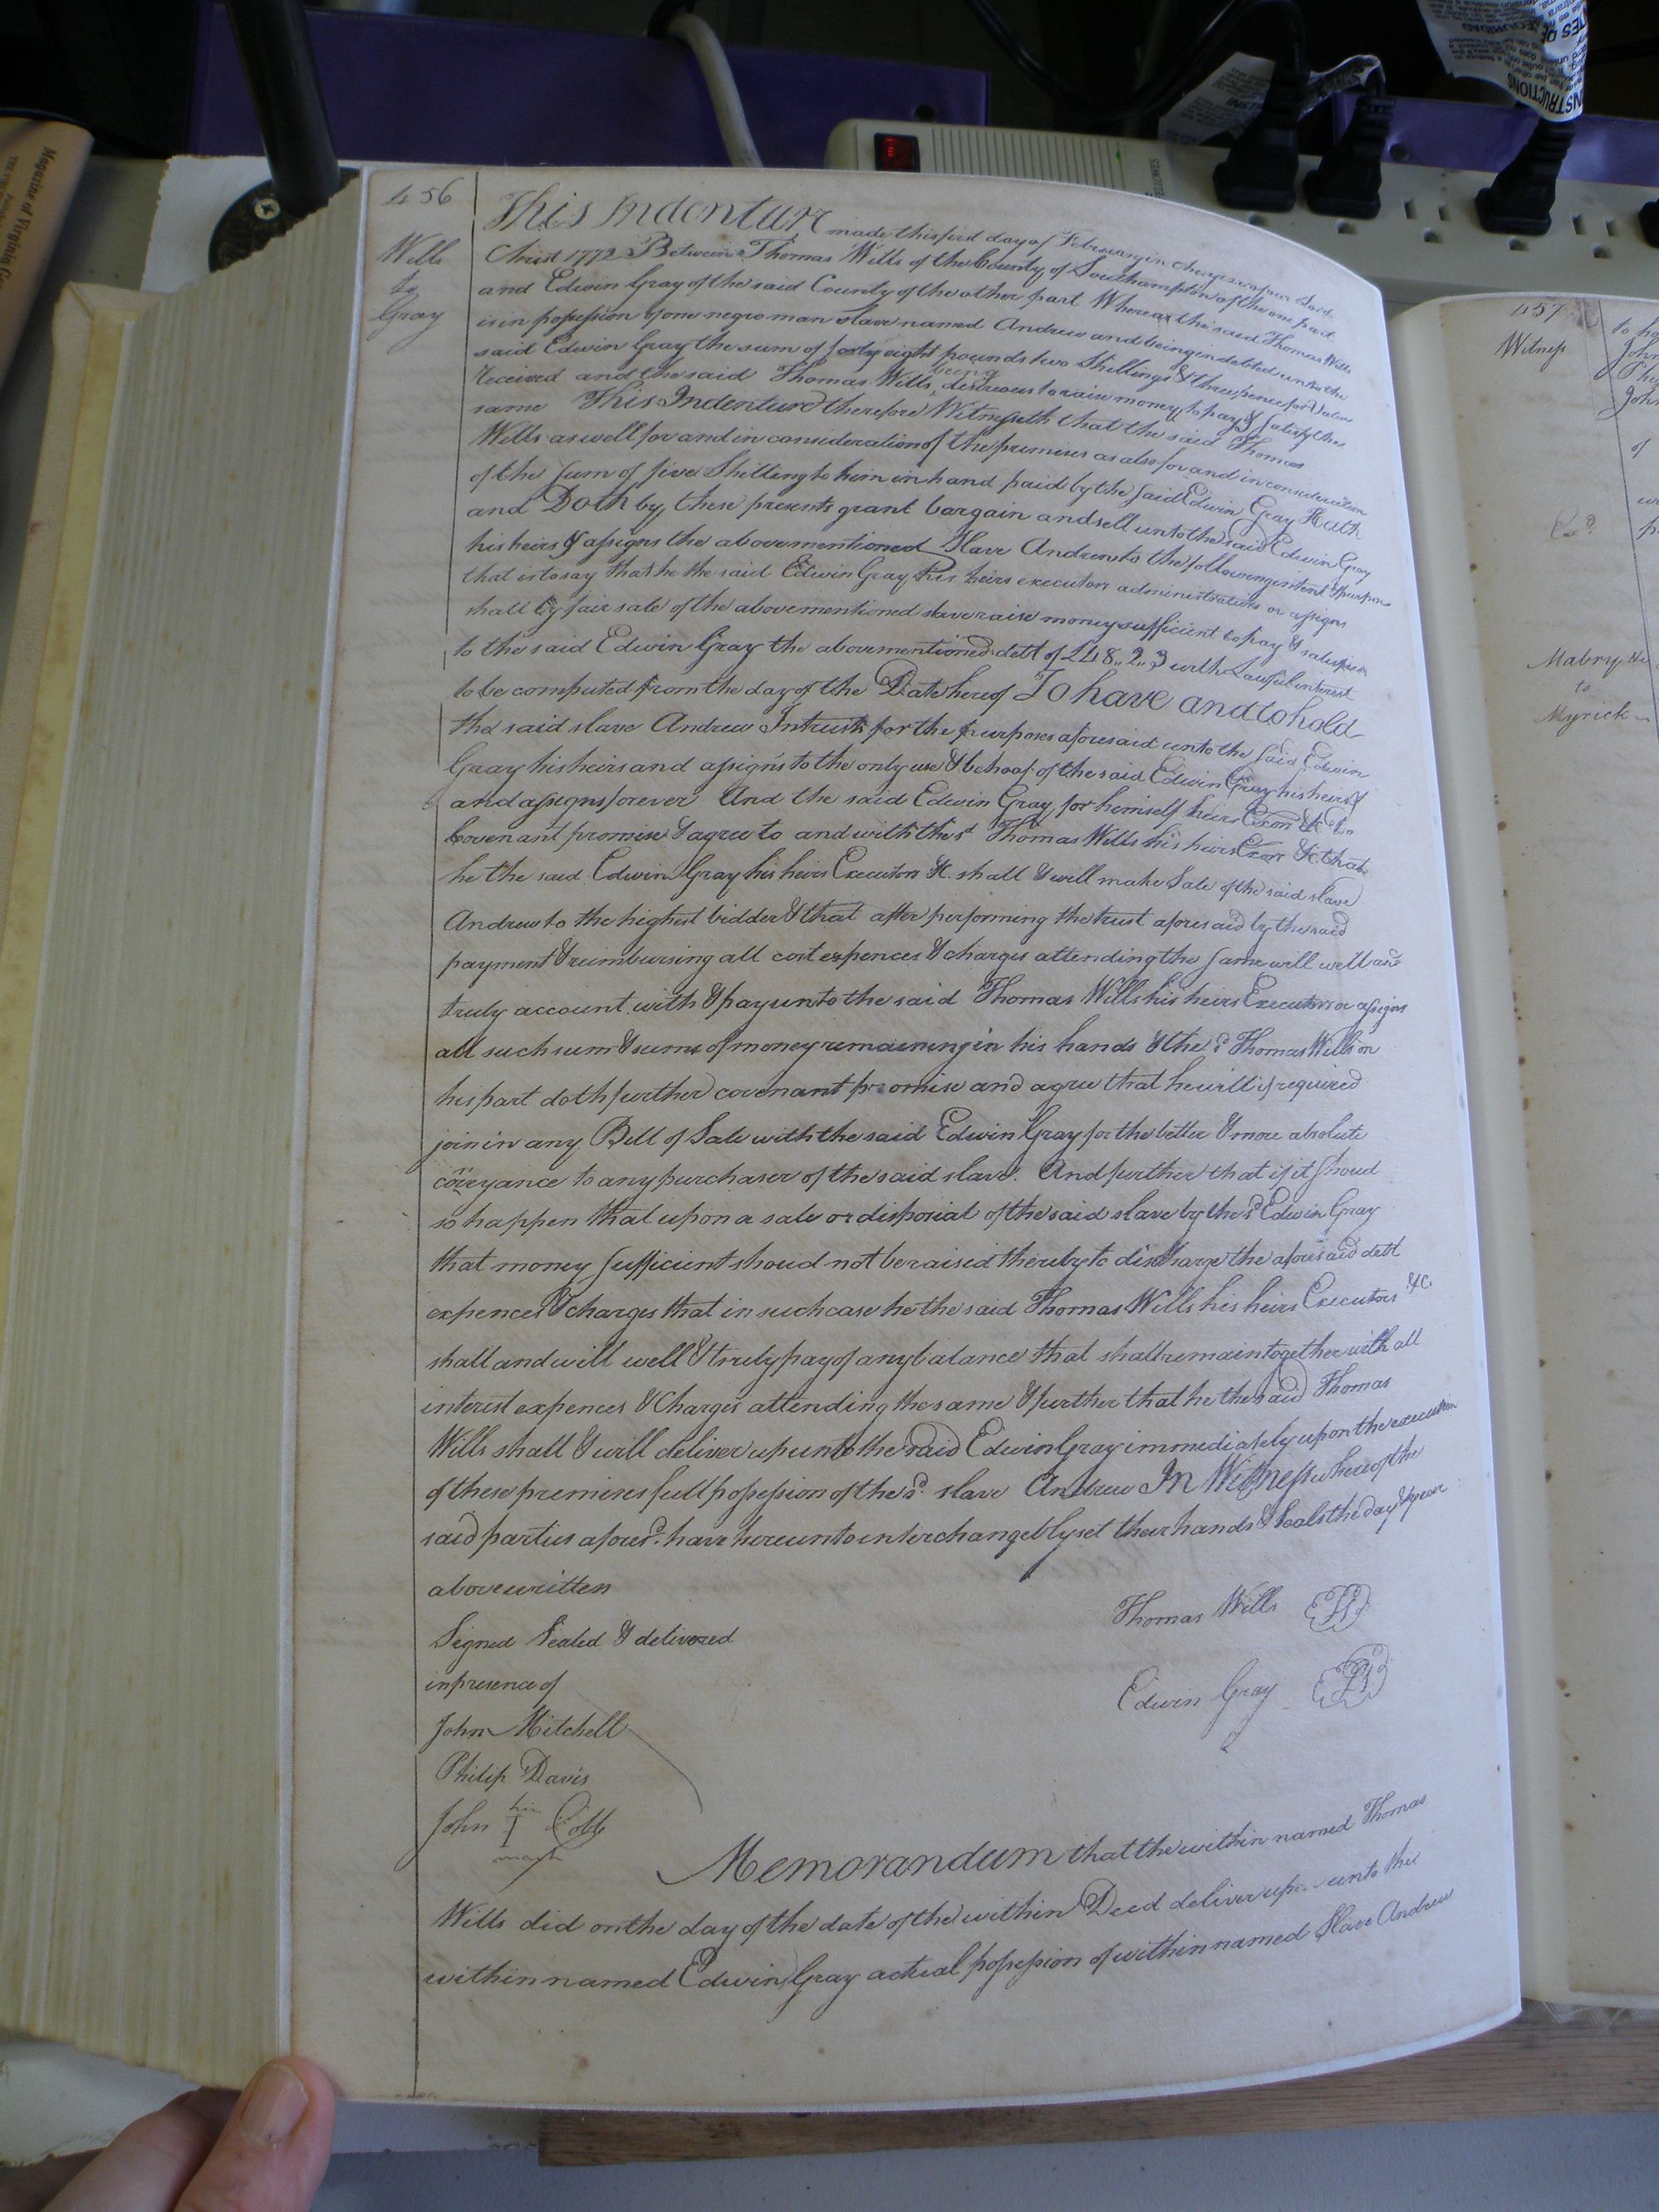 456
Wills
to
Gray
This Indenture made this first day of February in the year of our Lord
Christ 1772 Between Thomas Wills of the County of Southampton of the one part
and Edwin Gray of the said County of the other part Whereas the said Thomas Wills
is in possession of one negro man slave named Andrew and being indebted unto the
said Edwin Gray the sum of forty eight pounds two Shillings & three pence for value
received and the said Thomas Wills being desireous to raise money to pay & satisfy the
same This Indenture therefore Witnesseth that the said Thomas
Wills as well for and in consideration of the premises as also for and in consideration
of the sum of five Shillings to him in hand paid by the said Edwin Gray Hath
and Doth by these presents grant bargain and sell unto the said Edwin Gray
his heirs & assigns the abovementioned Slave Andrew to the following intent & purpose
that is to say that he the said Edwin Gray his heirs executors administrators or assigns
shall by fair sale of the abovementioned slave raise money sufficient to pay & satisfie
to the said Edwin Gray the abovementioned debt of £48..2..3 with Lawful interest
to be computed from the day of the Date hereof To have and to hold
the said slave Andrew In trust for the purposes aforesaid unto the said Edwin
Gray his heirs and assigns to the only use & behoof of the said Edwin Gray his heirs &
and assigns forever And the said Edwin Gray for himself heirs Exors &c
Covenant promise & agree to and with the sd Thomas Wills his heirs Exors &c. that
he the said Edwin Gray his heirs Executors &c. shall & will make Sale of the said slave
Andrew to the highest bidder & that after performing the trust aforesaid by the said
payment & reimbursing all cost expences & charges attending the same will well and
truly account with & pay unto the said Thomas Wills his heirs Executors or assigns
all such sum & sums of money remaining in his hands & the sd Thomas Wills on
his part doth further covenant promise and agree that he will if required
join in any Bill of Sale with the said Edwin Gray for the better & more absolute
coñveyance to any purchaser of the said slave. And further that if it shoud
so happen that upon a sale or disposial of the said slave by the sd Edwin Gray
that money sufficient shoud not be raised thereby to discharge the aforesaid debt
expences & charges that in such case he the said Thomas Wills his heirs Executors &c
shall and will well & truly pay of any balance that shall remain together with all
interest expences & Charges attending the same & further that he the said Thomas
Wills shall & will deliver up unto the said Edwin Gray immediately upon the execution
of these premises full possession of the sd. slave Andrew In Witness whereof the
said parties aforesd. have hereunto interchangebly set their hands & Seals the day & year
above written
Thomas Wills
Signed Sealed & delivered
in presence of
Edwin Gray
John Mitchell
Philip Davis
his
John I Cobb
mark
Memorandum that the within named Thomas
Wills did on the day of the date of the within Deed deliver up unto the
within named Edwin Gray actual possession of within named Slave Andrew
457
Witness
Mabry &c
to
Myrick
Magazine of Virginia